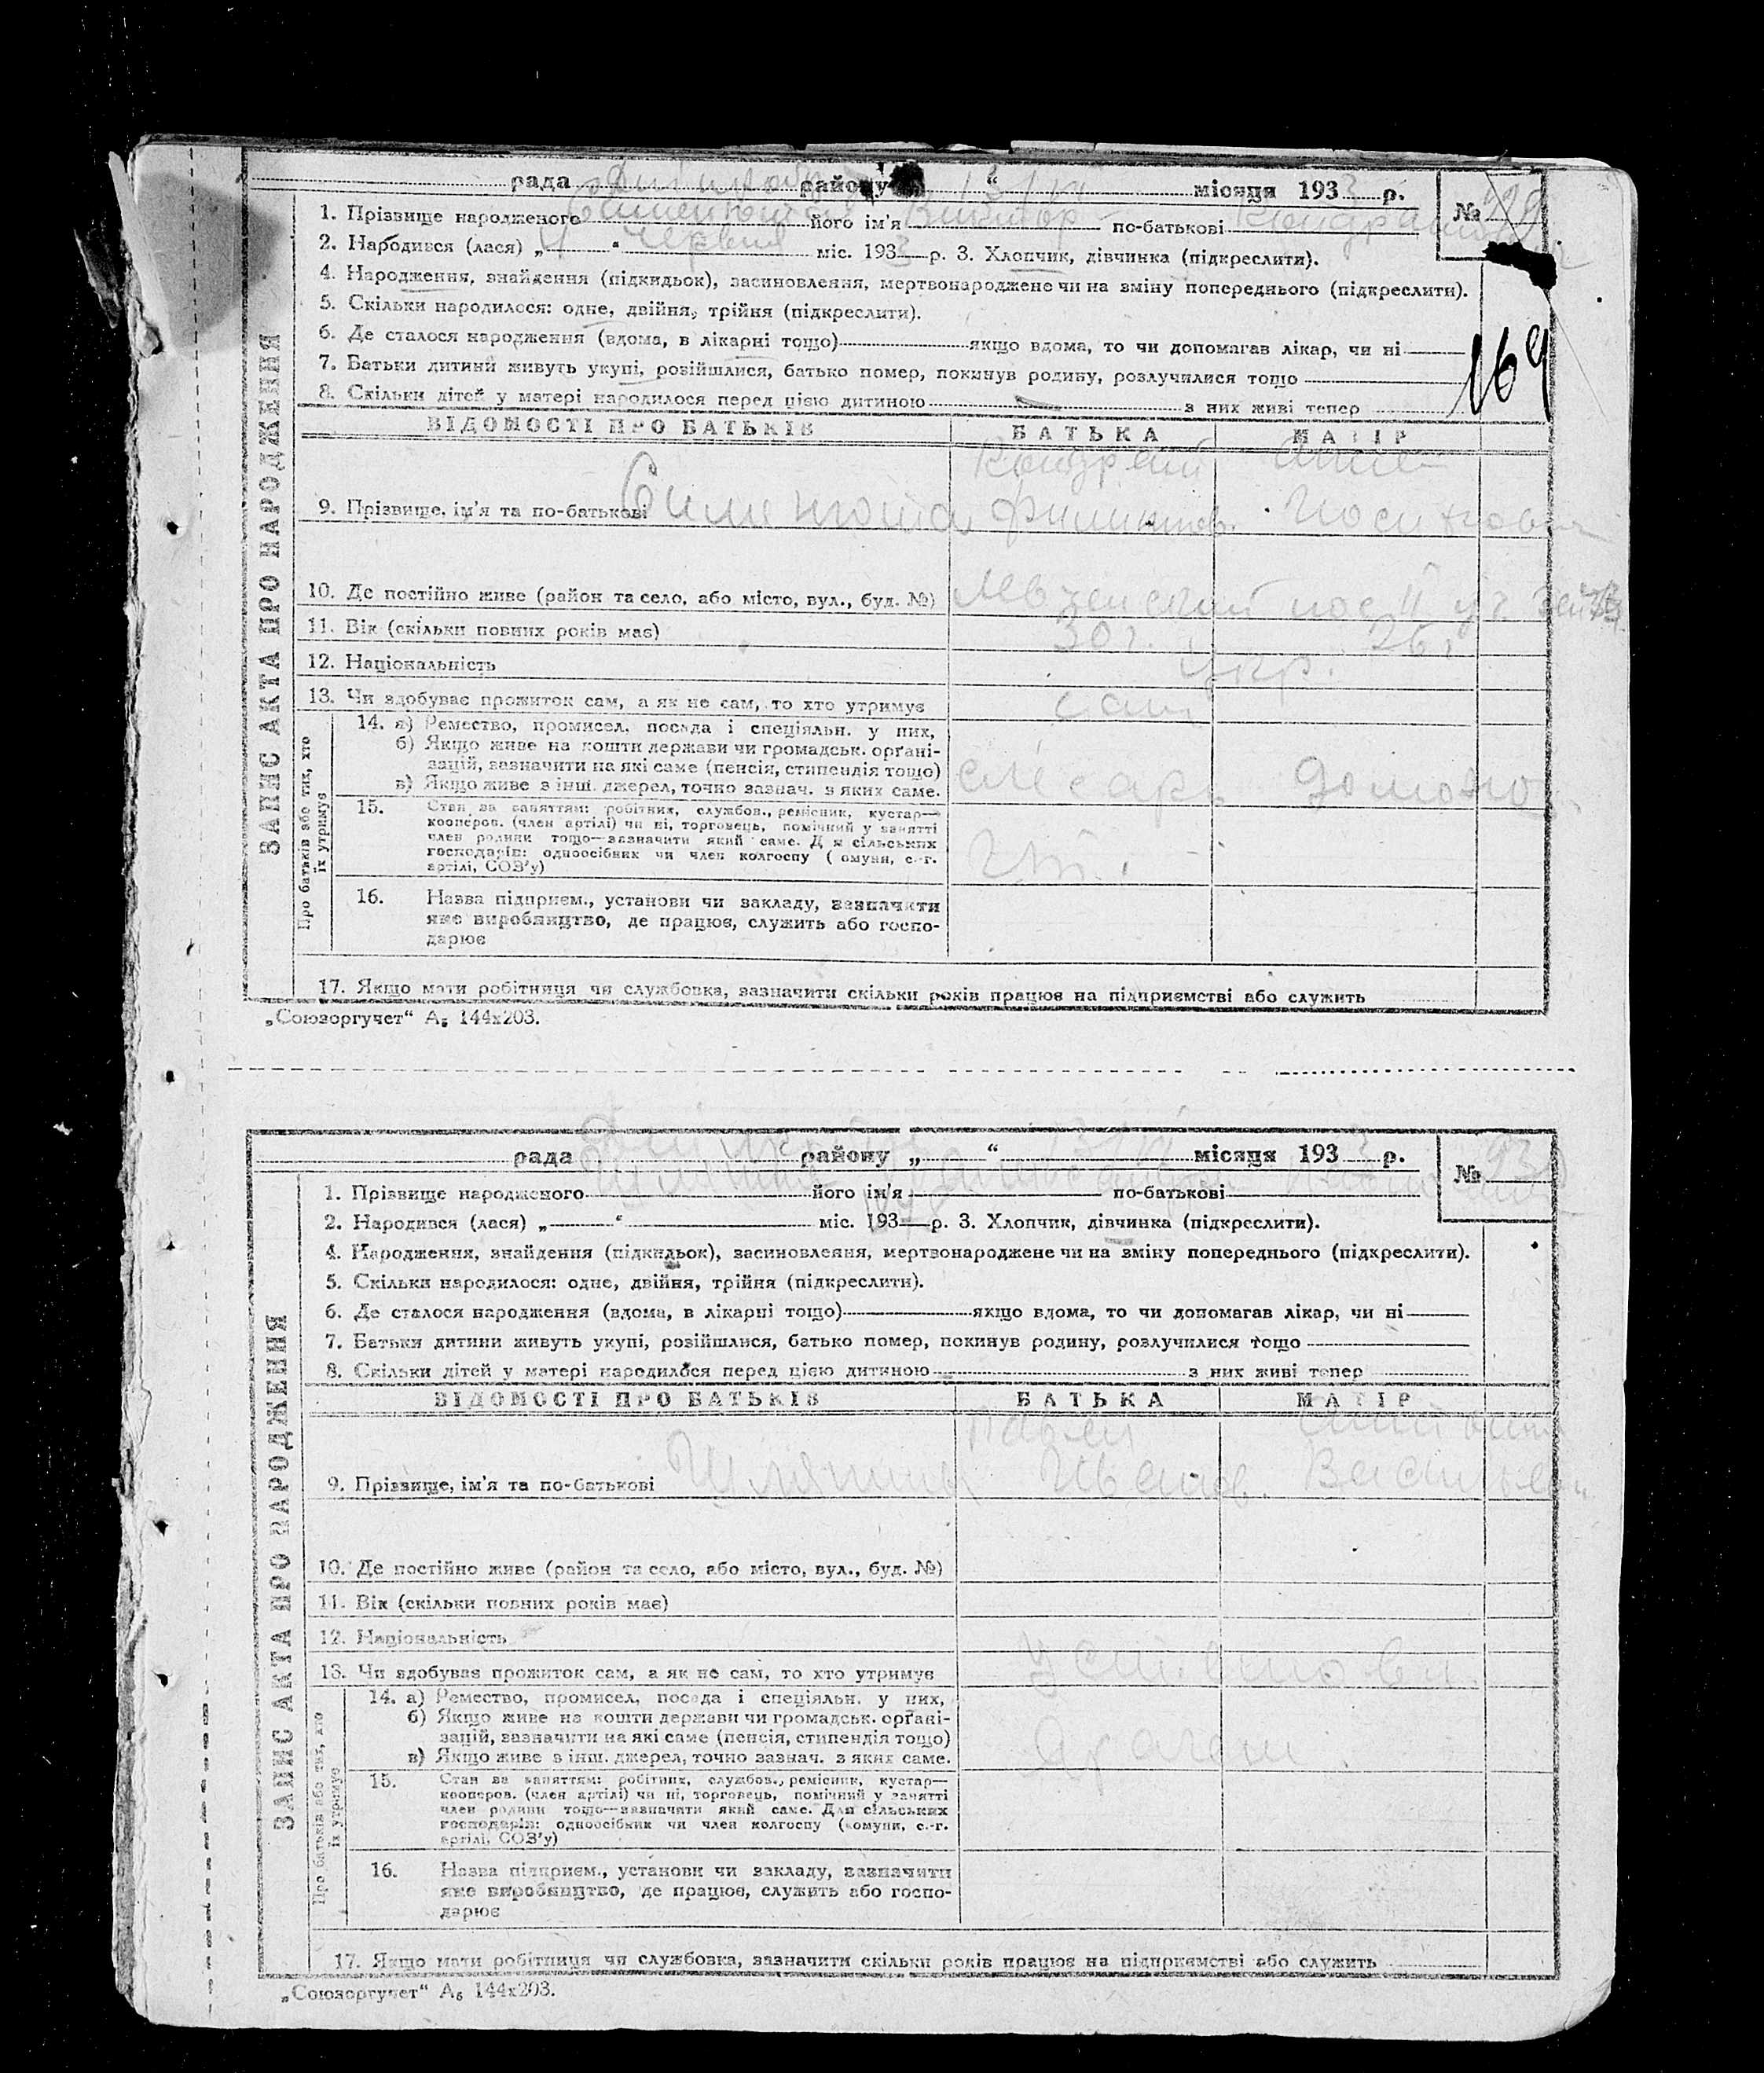 рада району „ “ 13/VI місяця 1933 р. №
1. Прізвище народженого його ім'я Виктор по-батькові
2. Народився (лася) „ 4 “ червня міс. 1933 р. 3. Хлопчик, дівчинка (підкреслити).
4. Народження, знайдення (підкидьок), засиновлення, мертвонароджене чи на зміну попереднього (підкреслити).
5. Скільки народилося: одне, двійня, трійня (підкреслити).
6. Де сталося народження (вдома, в лікарні тощо) якщо вдома, то чи допомагав лікар, чи ні
7. Батьки дитини живуть укупі, розійшлися, батько помер, покинув родину, розлучилися тощо
169
8. Скільки дітей у матері народилося перед цією дитиною з них живі тепер
ЗАПИС АКТА ПРО НАРОДЖЕННЯ
ВІДОМОСТІ ПРО БАТЬКІВ БАТЬКА МАТІР
9. Прізвище, ім'я та по-батькові
10. Де постійно живе (район та село, або місто, вул., буд. №)
11. Вік (скільки повних років має) 30 г. 26 г.
12. Національність укр.
13. Чи здобуває прожиток сам, а як не сам, то хто утримує сам
Про батьків або тих, хто їх утримує
14. а) Ремество, промисел, посада і спеціяльн. у них,
б) Якщо живе на кошти держави чи громадськ. орґані-
зацій, зазначити на які саме (пенсія, стипендія тощо)
в) Якщо живе з інш. джерел, точно зазнач. з яких саме. слесарь домохоз.
15. Стан за заняттям: робітник, службов., ремісник, кустар—
кооперов. (член артілі) чи ні, торговець, помічний у занятті
член родини тощо—зазначити який саме. Для сільських
господарів: одноосібник чи член колгоспу (комуни, с.-г.
артілі, СОЗ'у)
16. Назва підприєм., установи чи закладу, зазначити
яке виробництво, де працює, служить або госпо-
дарює
17. Якщо мати робітниця чи службовка, зазначити скільки років працює на підприємстві або служить
„Союзоргучет“ А₅ 144х203.
рада району „ “ 13/VI місяця 1933 р. № 93
1. Прізвище народженого його ім'я по-батькові
2. Народився (лася) „ “ міс. 193 р. 3. Хлопчик, дівчинка (підкреслити).
4. Народження, знайдення (підкидьок), засиновлення, мертвонароджене чи на зміну попереднього (підкреслити).
5. Скільки народилося: одне, двійня, трійня (підкреслити).
6. Де сталося народження (вдома, в лікарні тощо) якщо вдома, то чи допомагав лікар, чи ні
7. Батьки дитини живуть укупі, розійшлися, батько помер, покинув родину, розлучилися тощо
8. Скільки дітей у матері народилося перед цією дитиною з них живі тепер
ЗАПИС АКТА ПРО НАРОДЖЕННЯ
ВІДОМОСТІ ПРО БАТЬКІВ БАТЬКА МАТІР
Павел
9. Прізвище, ім'я та по-батькові Иванов.
10. Де постійно живе (район та село, або місто, вул., буд. №)
11. Вік (скільки повних років має)
12. Національність
13. Чи здобуває прожиток сам, а як не сам, то хто утримує
Про батьків або тих, хто їх утримує
14. а) Ремество, промисел, посада і спеціяльн. у них,
б) Якщо живе на кошти держави чи громадськ. орґані-
зацій, зазначити на які саме (пенсія, стипендія тощо)
в) Якщо живе з інш. джерел, точно зазнач. з яких саме.
15. Стан за заняттям: робітник, службов., ремісник, кустар—
кооперов. (член артілі) чи ні, торговець, помічний у занятті
член родини тощо—зазначити який саме. Для сільських
господарів: одноосібник чи член колгоспу (комуни, с.-г.
артілі, СОЗ'у)
16. Назва підприєм., установи чи закладу, зазначити
яке виробництво, де працює, служить або госпо-
дарює
17. Якщо мати робітниця чи службовка, зазначити скільки років працює на підприємстві або служить
„Союзоргучет“ А₅ 144х203.